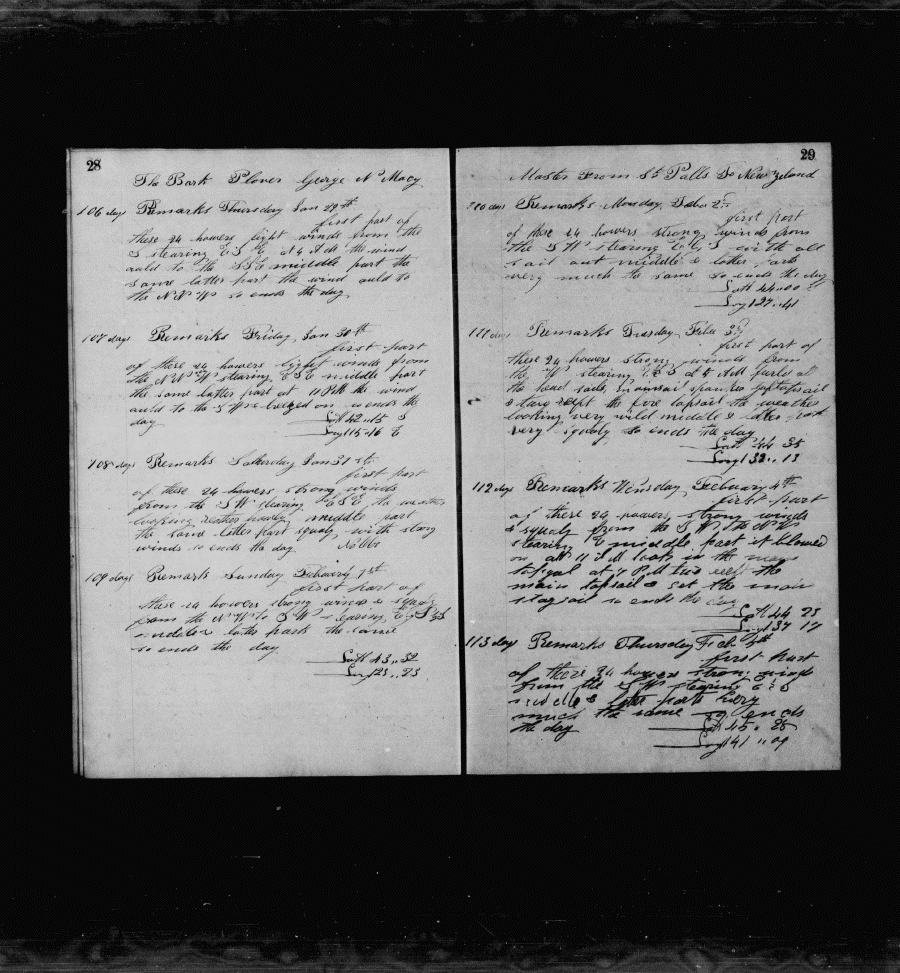 28
The Bark Plover George N Macy
106 days Remarks Thursday Jan 29th
first part of
these 24 howers light winds from the
S stearing E S E At 4 A the wind
auld to the S S E middle part the
same latter part the wind auld to
the N N W so ends the day
107 days Remarks Friday Jan 30th
first part
of these 24 howers light winds from
the N N W stearing E S E middle part
the same latter part at 11 the wind
auld to the S W so ends the
day
Latt 42..15 S
Long 115..16 E
108 days Remarks Saterday Jan 31 st
first part
of these 24 howers strong winds
from the S W stearing E S E the weather
looking middle part
the same latter part squaly with stong
winds so ends the day
109 days Remark Sunday Febuary 1st
first part of
these 24 howers strong winds &
from the N W to S W stearing E
middle & latter parts the same
so ends the day
Latt 43..32
Long 123..23
29
Master From St Palls To New Zeland
110 days Remarks Monday Feb 2
first part
of these 24 howers strong winds from
the S W stearing E with all
sail out middle & latter parts
very much the same so ends the day
Latt 44..00
Long 127..41
111 days Remarks Tuesday Feb 3
first part of
these 24 howers strong winds from
the W stearing E S at 5 AM furld all
the head sails mainsail spanker
& two reept the fore topsail the weather
looking very wild middle & latter part
very squaly so ends the day
Latt 44 35
Long 132..13
112 days Remarks Wensday Febuary 4th
first part
of these 24 howers strong winds
& squaly from the S W the N W
stearing E middle part it blowed
on all 11 AM took in the main
topgal at 7 PM two reept the
main topsail & set the main
stagsail so ends the day
Latt 44 23
Long 137 17
113 day Remarks Thursday Feb 5th
first part
of these 24 howers strong winds
from the S W stearing E S
middle & latter parts very
much the same so ends
the day
Latt 45.. 25
Long 141..09